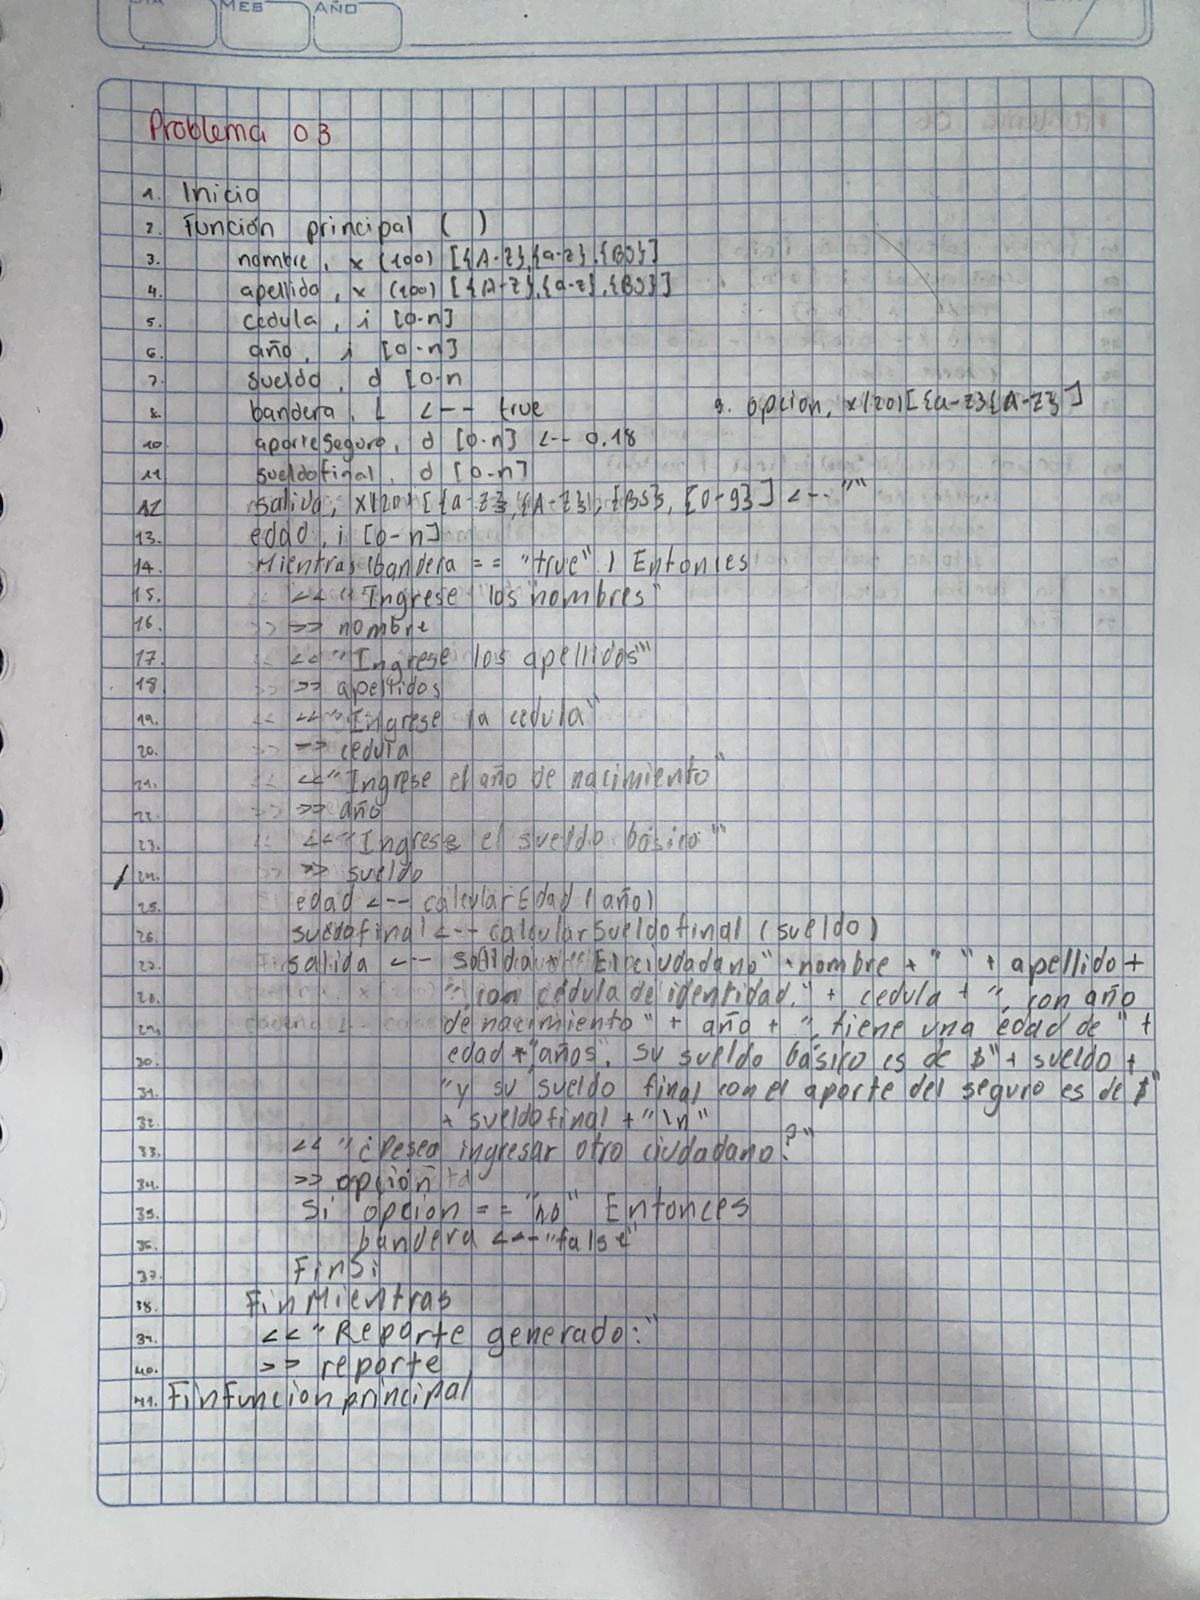 MES AÑO
Problema 03
1. Inicio
2. Función principal ( )
3. nombre, x (100) [{A-Z},{a-z},{BS}]
4. apellido, x (100) [{A-Z},{a-z},{BS}]
5. cedula, i [0-n]
6. año, i [0-n]
7. sueldo, d [0-n
8. bandera, L <-- true
9. opcion, x(20)[{a-z}{A-Z}]
10. aporteSeguro, d [0-n] <-- 0.18
11. sueldofinal, d [0-n]
12 salida, x(20) [{a-z},{A-Z}, {BS}, [0-9}] <-- ""
13. edad, i [0-n]
14. Mientras (bandera == "true" ) Entonces
15. << "Ingrese los nombres"
16. >> nombre
17. << "Ingrese los apellidos"
18 >> apellidos
19. << "Ingrese la cedula"
20. >> cedula
21. << "Ingrese el año de nacimiento"
22. >> año
23. << "Ingrese el sueldo básico"
24. >> sueldo
25. edad <-- calcularEdad (año)
26. sueldofinal <-- calcularSueldofinal (sueldo)
27. salida <-- salida + "El ciudadano" + nombre + " " + apellido +
28. ", con cédula de identidad," + cedula + ", con año
29. de nacimiento" + año + ", tiene una edad de " +
30. edad + "años. Su sueldo básico es de $" + sueldo +
31. "y su sueldo final con el aporte del seguro es de $"
32. + sueldofinal + "\n"
33. << "¿Desea ingresar otro ciudadano?"
34. >> opción
35. Si opcion == "no" Entonces
36. bandera <--"false"
37. FinSi
38. FinMientras
39. << "Reporte generado:"
40. >> reporte
41. Finfuncion principal